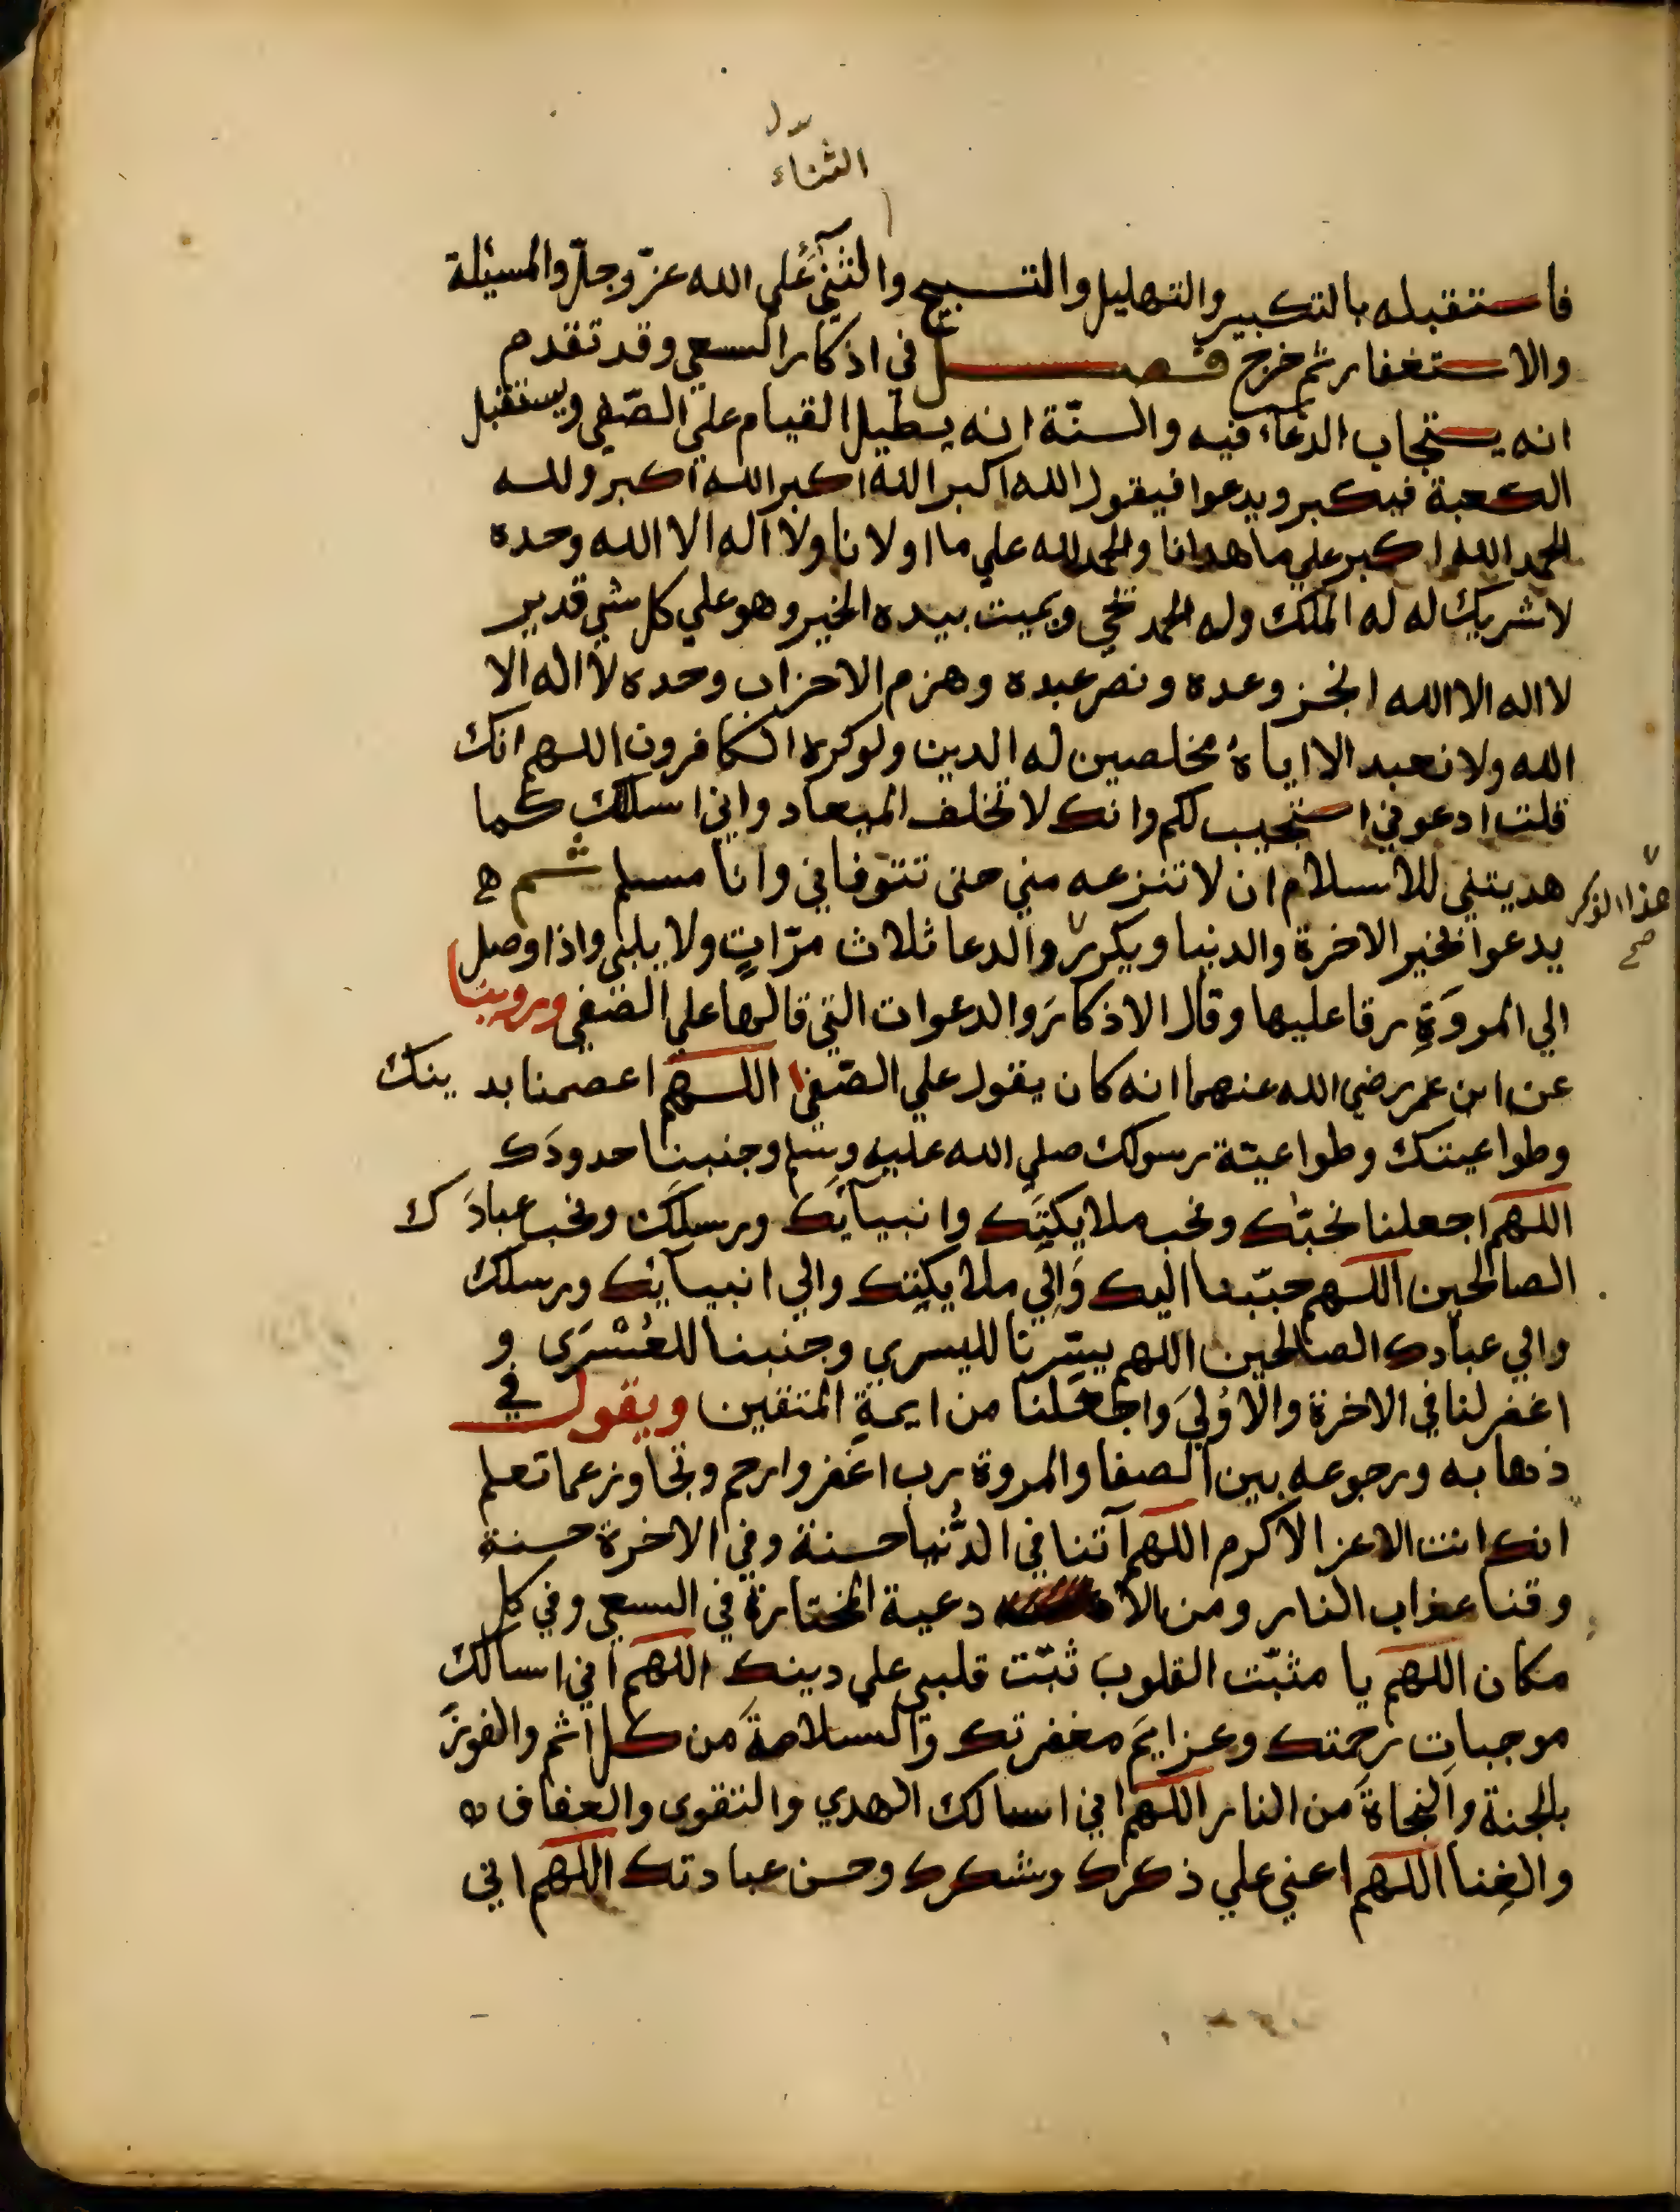 الثناء
فاستقبله بالتكبير والتهليل والتسبيح والثنى على الله عزّ وجلّ والمسيئلة
والاستغفار ثم خرج فصل في اذكار السعي وقد تقدم
انه يستجاب الدعاء فيه والسنّة انه يطيل القيام علي الصّفى ويستقبل
الكعبة فيكبر ويدعوا فيقول الله اكبر الله اكبر الله اكبر ولله
الحمد الله اكبر علي ما هدانا والحمد لله علي ما اولانا ولا اله الا الله وحده
لا شريك له له الملك وله الحمد يحي ويميت بيده الخير وهو علي كل شي قدير
لا اله الا الله انجز وعده ونصر عبده وهزم الاحزاب وحده لا اله الا
الله ولا نعبد الا اياهُ مخلصين له الدين ولو كره الكافرون اللهم انك
قلت ادعوني استجيب لكم وانك لا تخلف الميعاد واني اسلك كما
هديتني للاسلام ان لا تنزعه مني حتى تتوفاني وانا مسلم ثم
هذا الذكر صح
يدعوا بخير الاخرة والدنيا ويكرر والدعا ثلاث مرّاتٍ ولا يلبي واذا وصل
الي المروَةِ رقا عليها وقال الاذكارَ والدعوات التي قالها علي الصّفى وروينا
عن ابن عمر رضي الله عنهما انه كان يقول علي الصّفى اللهم اعصمنا بدينك
وطواعيتك وطواعيّة رسولك صلي الله عليه وسلم وجنبنا حدودَك
اللهم اجعلنا نحبّك ونحب ملايكتَك وانبيآئك ورسلك ونحب عبادَك
الصالحين اللهم حبّبنا اليك وَالِي ملايكتك والي انبيآئك ورسلك
والي عبادك الصالحين اللهم يسّرنا لليسري وجنبنا للعُسْرَى و
اغفر لنا في الاخرة والاوُليَ واجعَلنا من ايمةِ المتقين ويقول في
ذهابه ورجوعه بين الصفا والمروة رب اغفر وارحم وتجاوز عما تعلم
انك انت الاعز الاكرم اللهم آتنا في الدُّنيا حسنة وفي الاخرة حسنة
وقنا عذاب النار ومن الادعية المختارة في السعي وفي كل
مكان اللهم يا مثبّت القلوب ثبّت قلبي علي دينك اللهم اني اسالك
موجباتِ رحمتك وعزايمَ مغفرتك والسلامةَ من كل اثم والفوزَ
بالجنة والنجاةَ من النار اللهم اني اسالك الهدي والتقوى والعفاف
والغِنا اللهم اعني علي ذكرك وشكرك وحسن عبادتك اللهم اني